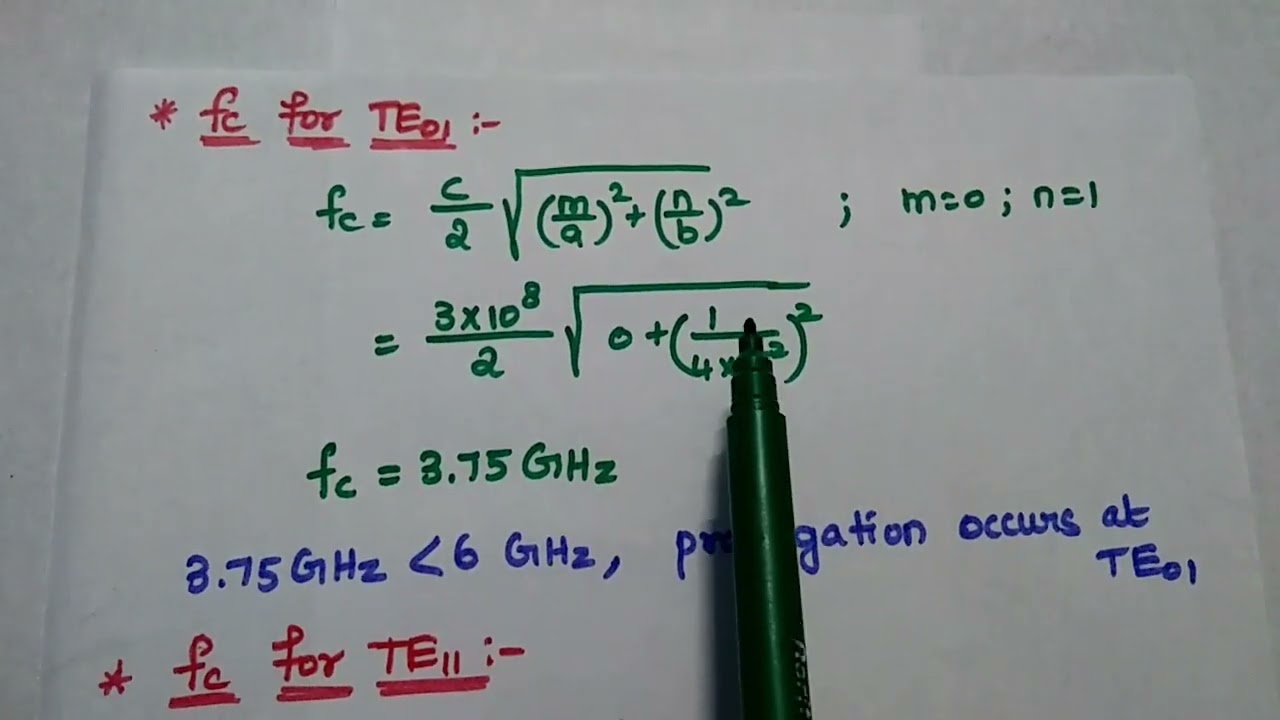 * fc for TE01 :-
fc = c/2 √(m/a)²+(n/b)² ; m=0 ; n=1
= 3×10⁸/2 √0+(1/4×
fc = 3.75 GHz
3.75 GHz < 6 GHz, occurs at
TE01
* fc for TE11 :-